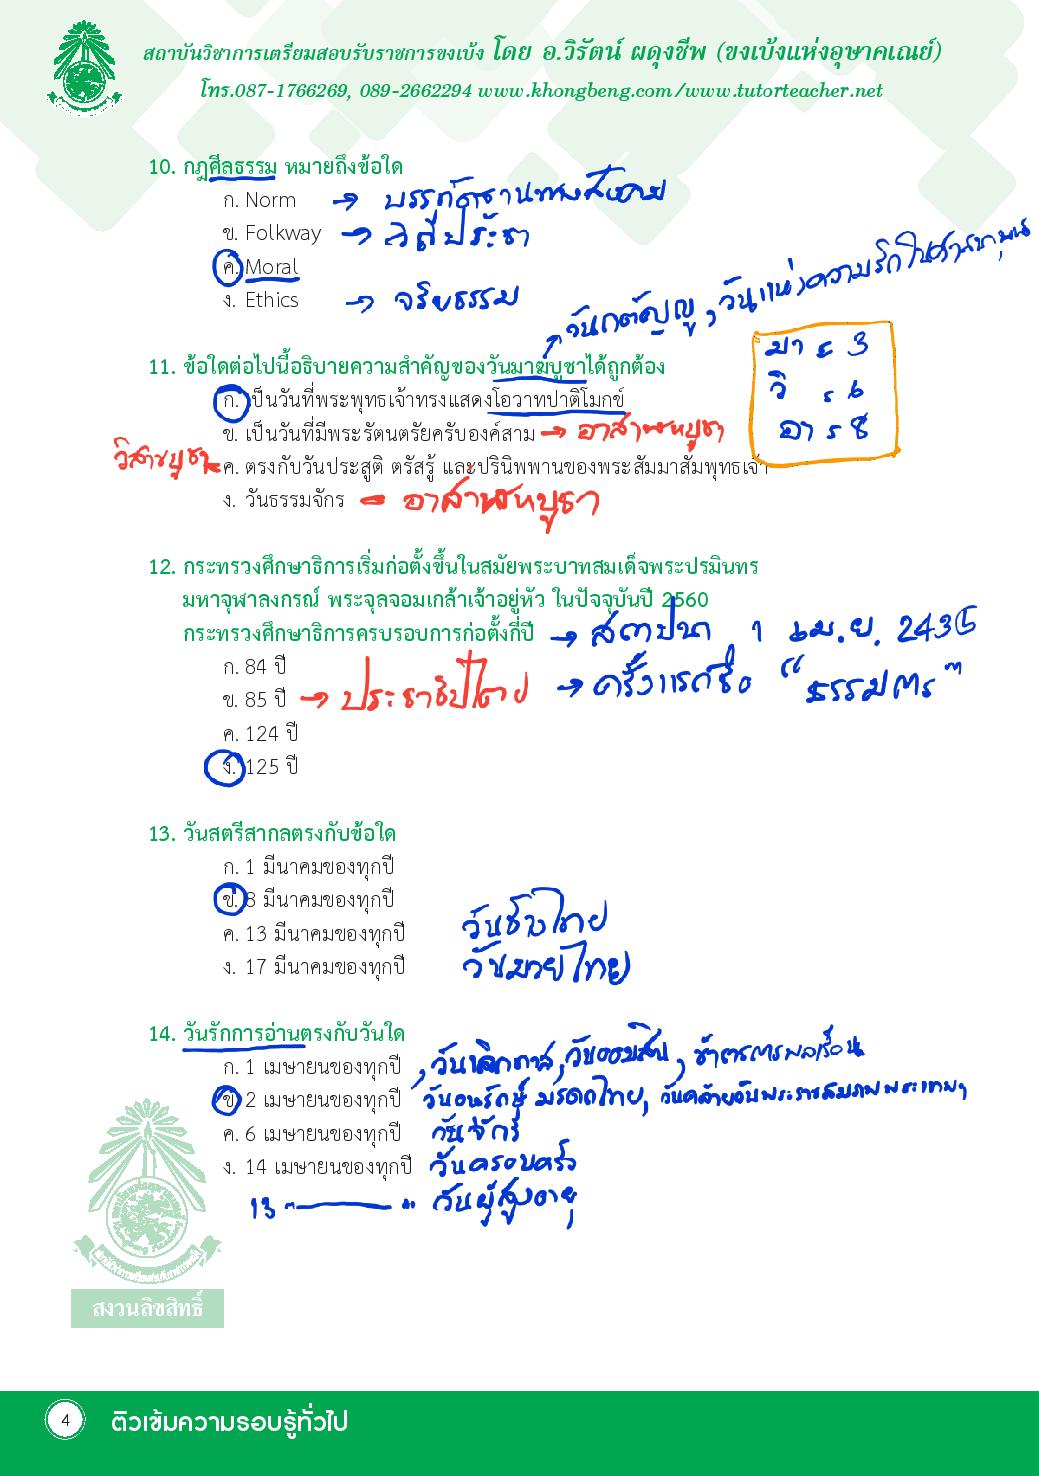 สถาบันวิชาการเตรียมสอบรับราชการขงเบ้ง โดย อ.วิรัตน์ ผดุงชีพ (ขงเบ้งแห่งอุษาคเณย์)
โทร.087-1766269, 089-2662294 www.khongbeng.com/www.tutorteacher.net
10. กฎศีลธรรม หมายถึงข้อใด
ก. Norm → บรรทัดฐานทางสังคม
ข. Folkway → วิถีประชา
ค. Moral
ง. Ethics → จริยธรรม
วันกตัญญู, วันแห่งความรักในศาสนาพุทธ
11. ข้อใดต่อไปนี้อธิบายความสำคัญของวันมาฆบูชาได้ถูกต้อง
มา ร 3
วิ ร 6
อา ร 8
ก. เป็นวันที่พระพุทธเจ้าทรงแสดงโอวาทปาติโมกข์
ข. เป็นวันที่มีพระรัตนตรัยครบองค์สาม → อาสาฬหบูชา
วิสาขบูชา ค. ตรงกับวันประสูติ ตรัสรู้ และปรินิพพานของพระสัมมาสัมพุทธเจ้า
ง. วันธรรมจักร = อาสาฬหบูชา
12. กระทรวงศึกษาธิการเริ่มก่อตั้งขึ้นในสมัยพระบาทสมเด็จพระปรมินทร
มหาจุฬาลงกรณ์ พระจุลจอมเกล้าเจ้าอยู่หัว ในปัจจุบันปี 2560
กระทรวงศึกษาธิการครบรอบการก่อตั้งกี่ปี → สถาปนา 1 เม.ย. 2435
ก. 84 ปี
ข. 85 ปี → ประชาธิปไตย → ครั้งแรกชื่อ "ธรรมการ"
ค. 124 ปี
ง. 125 ปี
13. วันสตรีสากลตรงกับข้อใด
ก. 1 มีนาคมของทุกปี
ข. 8 มีนาคมของทุกปี
ค. 13 มีนาคมของทุกปี วันช้างไทย
ง. 17 มีนาคมของทุกปี วันมวยไทย
14. วันรักการอ่านตรงกับวันใด
ก. 1 เมษายนของทุกปี , วันเลิกทาส, วันออมสิน, ข้าราชการพลเรือน
ข. 2 เมษายนของทุกปี วันอนุรักษ์มรดกไทย, วันคล้ายวันพระราชสมภพพระเทพฯ
ค. 6 เมษายนของทุกปี วันจักรี
ง. 14 เมษายนของทุกปี วันครอบครัว
13 " — " วันผู้สูงอายุ
สงวนลิขสิทธิ์
4 ติวเข้มความรอบรู้ทั่วไป